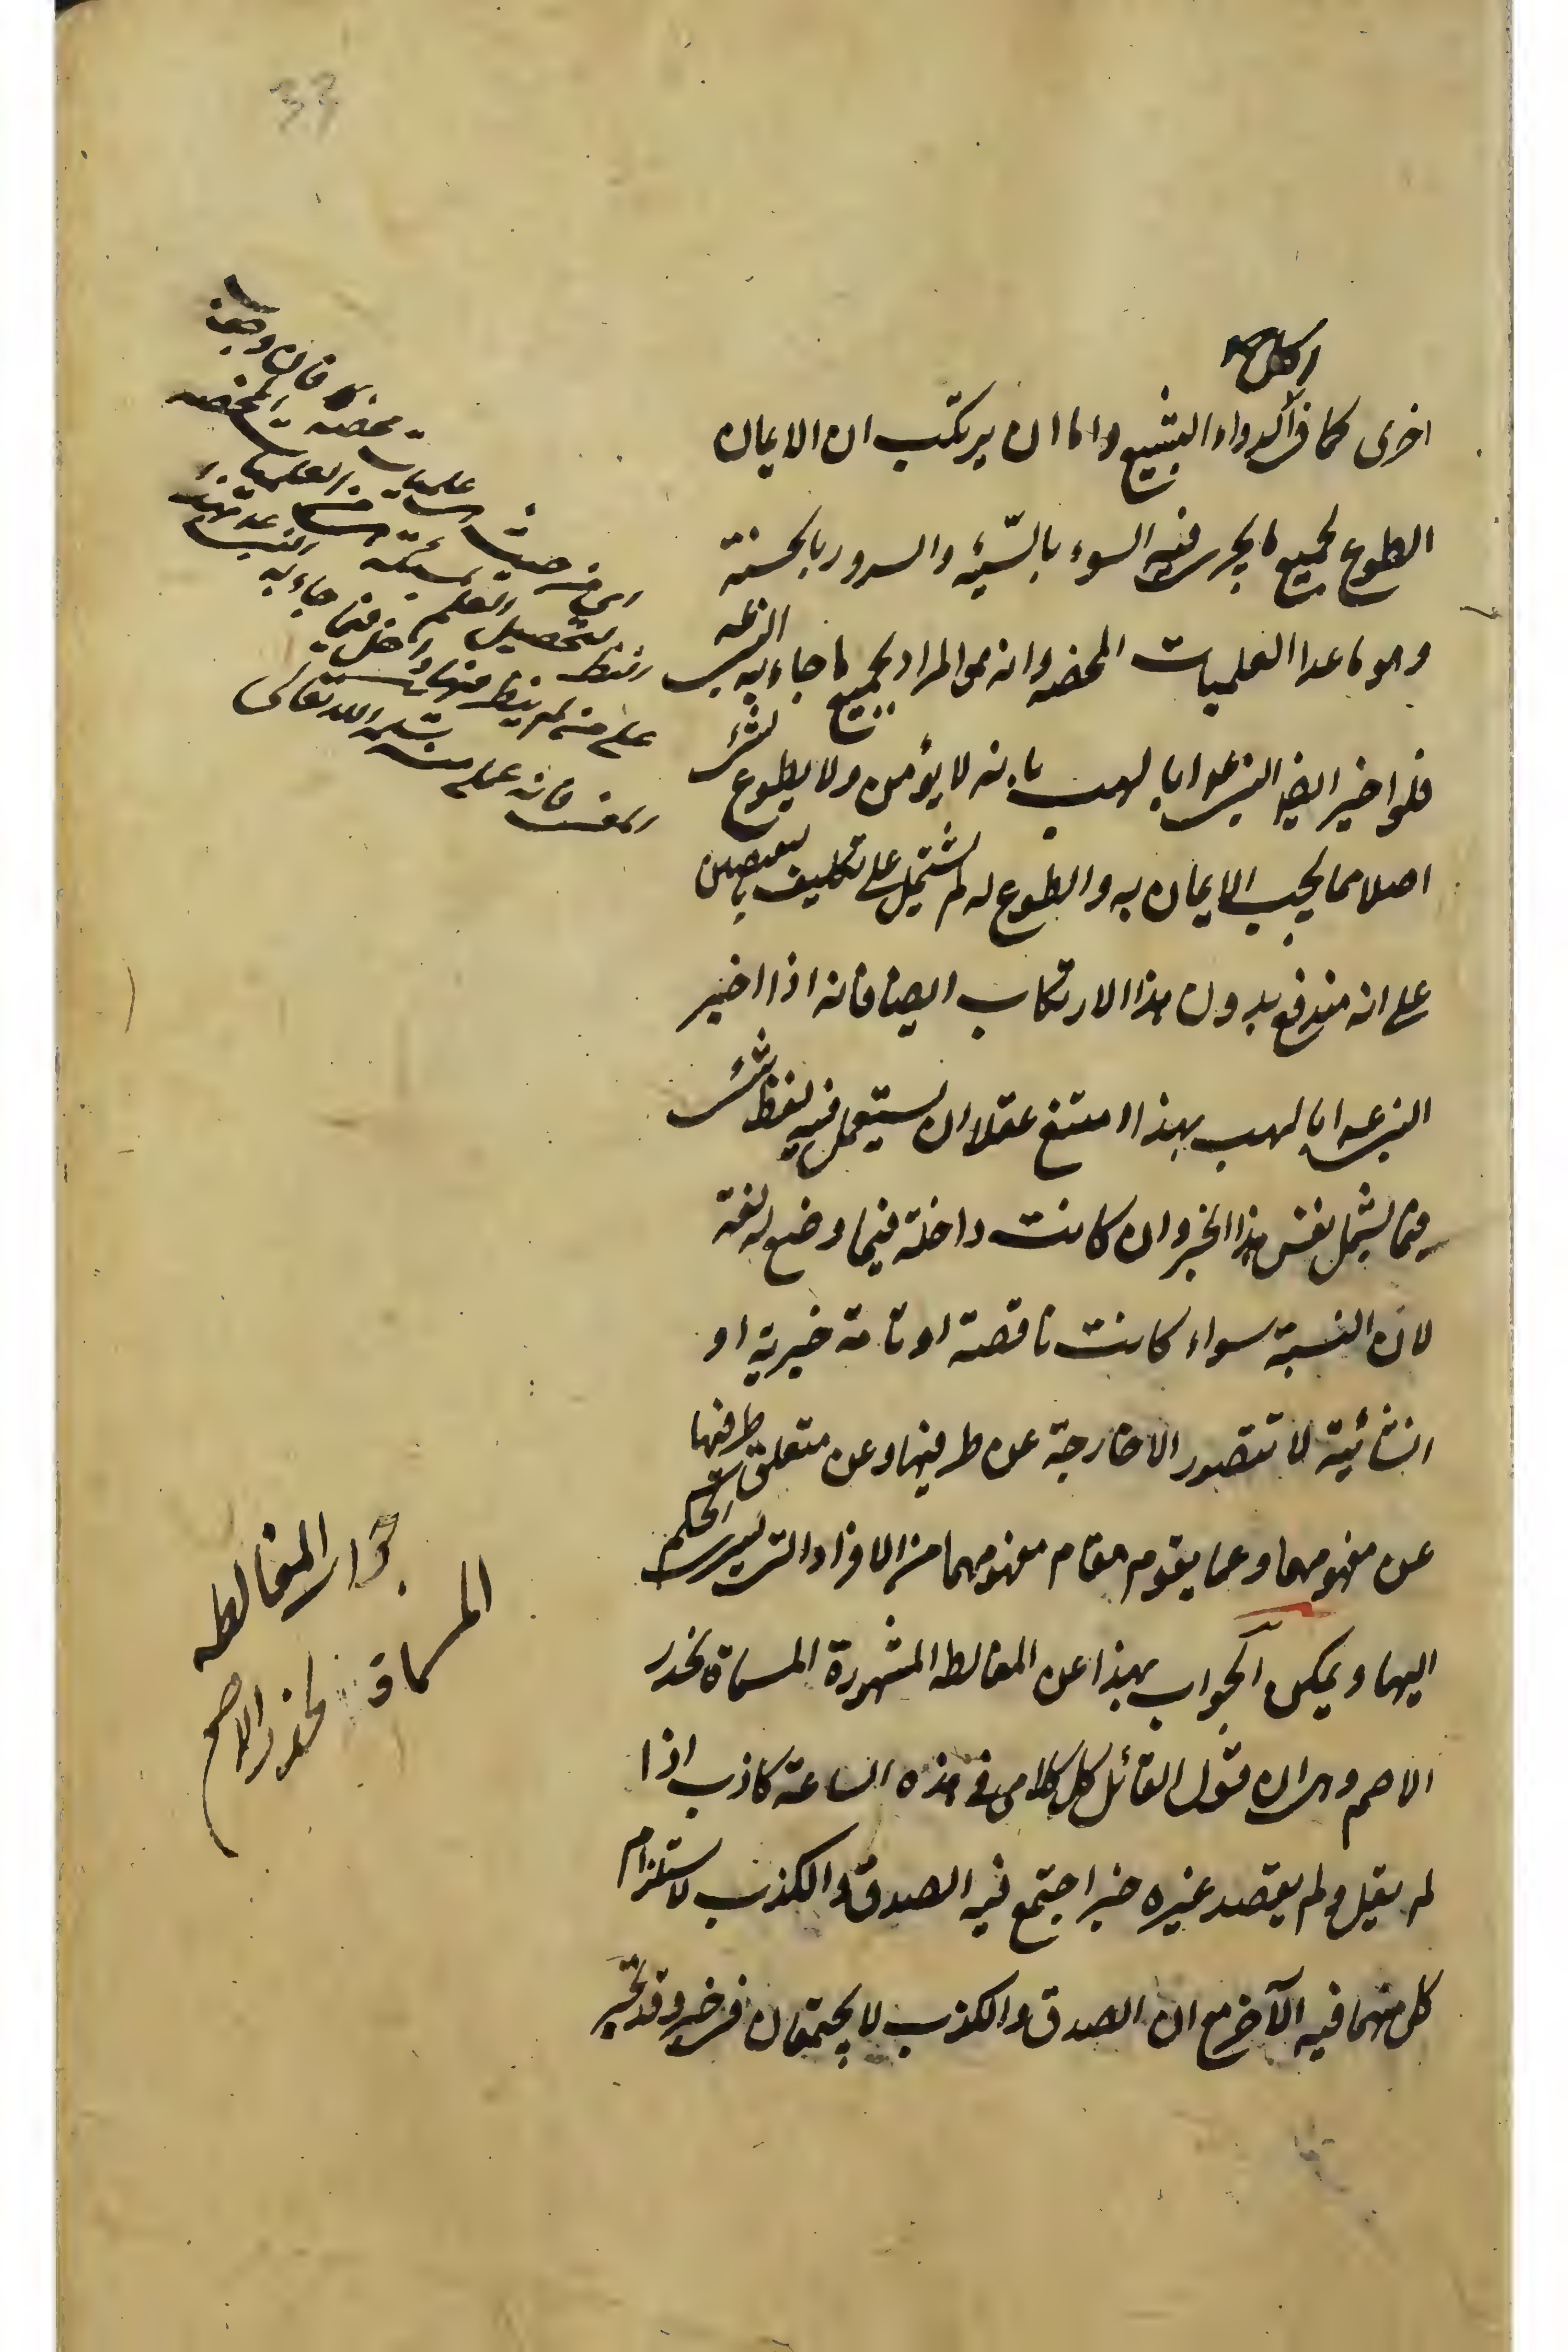 33
اخرى كما فى اكل دواء البشيع واما ان يرتكب ان الايمان
الطوع لجميع ما يجرى فيه السوء بالسيئه والسرور بالحسنة
وهو ما عدا العلميات المحضه وانه هو المراد بجميع ما جاء به النبى
فلو اخبر ايضا النبى ابا لهب بانه لا يؤمن ولا يطوع لشئ
اصلا مما يجب الايمان به والطوع له لم يشتمل على تكليف
على انه مندفع بدون هذا الارتكاب ايضا فانه اذا اخبر
النبى ابا لهب بهذا امتنع عقلا ان يستعمل فيه لفظ شئ
فيما يشمل نفس هذا الخبر وان كانت داخلة فيما وضع له لغة
لان النسبة سواء كانت ناقصة او تامة خبرية او
انشائية لا تتصور الا خارجة عن طرفيها وعن متعلق طرفيها
عن مفهومهما وعما يقوم مقام مفهومهما من الافراد التى يسرى الحكم
اليها ويمكن الجواب بهذا عن المغالطه المشهورة المسماة بجذر
الاصم وهى ان قول القائل كل كلامى فى هذه الساعة كاذب اذا
لم يقل ولم يقصد غيره خبر اجتمع فيه الصدق والكذب لاستلزام
كل منهما فيه الآخر مع ان الصدق والكذب لا يجتمعان فى خبر وقد تحير
اى من حيث
علميات محضه
فان وجب
لتحصيل العلم
داخل فيما جاء به
على من لم ينظر منها
فانه علم منه
الله تعالى
جواب المغالطه
المسماة بجذر الاصم